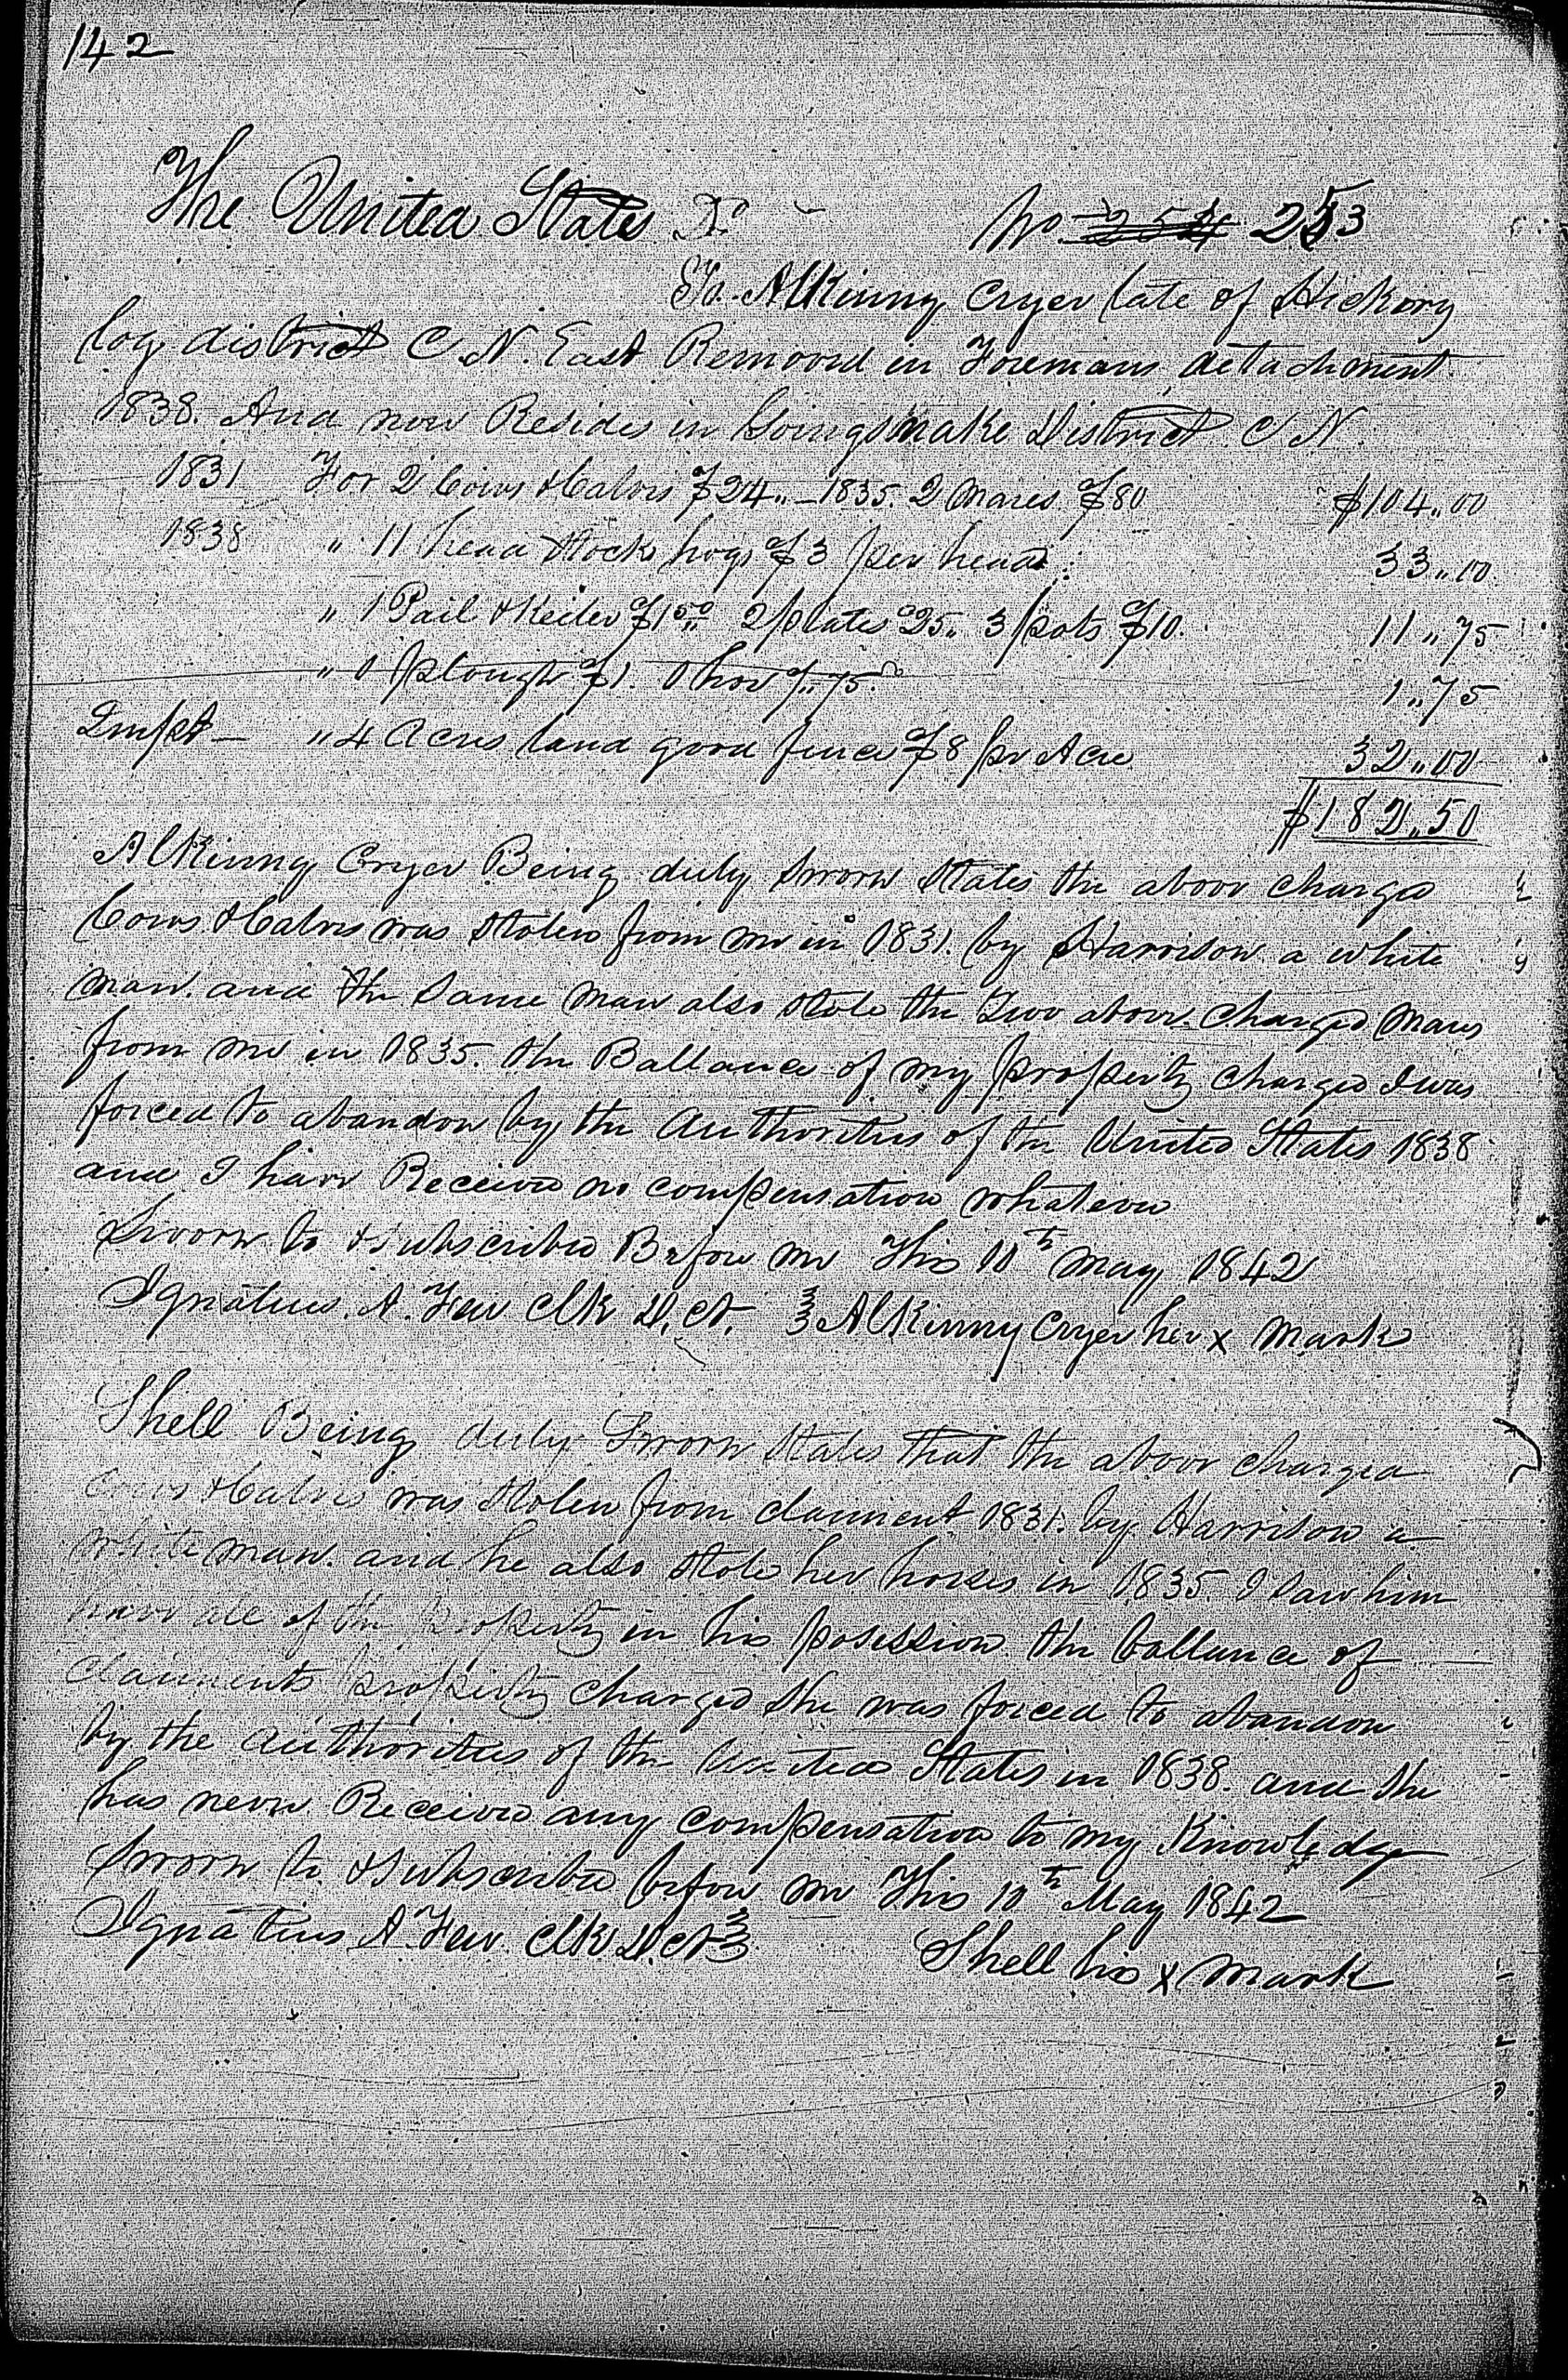 142
The United States Dr No. 254 253
To. AlKinny Cryer late of Hickory
log district C N. East Removed in Foremans detachment
1838. And now Resides in Goingsnake District C N
1831 For 2 Cows & Calves $24.. – 1835. 2 Mares $80 $104.,00
1838 " 11 head Stock hogs $3 per head : 33.,00
" 1 Pail & Keiler $1 50 2 plates 25. 3 pots $10. 11.,75
" 1 plough $1. 1 hoe $.75. 1.,75
Impt – " 4 Acres land good fence $8 pr Acre 32.,00
$182.,50
AlKinny Cryer Being duly Sworn States the above charge
Cows & Calves was Stolen from me in 1831. by Harrison a white
man. and the Same man also Stole the Two above charged Mares
from me in 1835. the Ballance of my property charged I was
forced to abandon by the Authorities of the United States 1838
and I have Received no compensation whatever
Sworn to & Subscribed Before me This 10th May 1842
Ignatius. A. Few Clk D. Ct. } AlKinny Cryer her x Mark
Shell Being duly Sworn States that the above charged
Cows & Calves was Stolen from claiment 1831. by Harrison a
white man. and he also Stole her horses in 1835. I Saw him
have all of the property in his posession the ballance of
claiments property charged She was forced to abandon
by the Authorities of the United States in 1838. and She
has never Received any compensation to my Knowledge
Sworn to & Subscribed before me This 10th May 1842
Ignatius A. Few. Clk D. Ct } Shell his x Mark